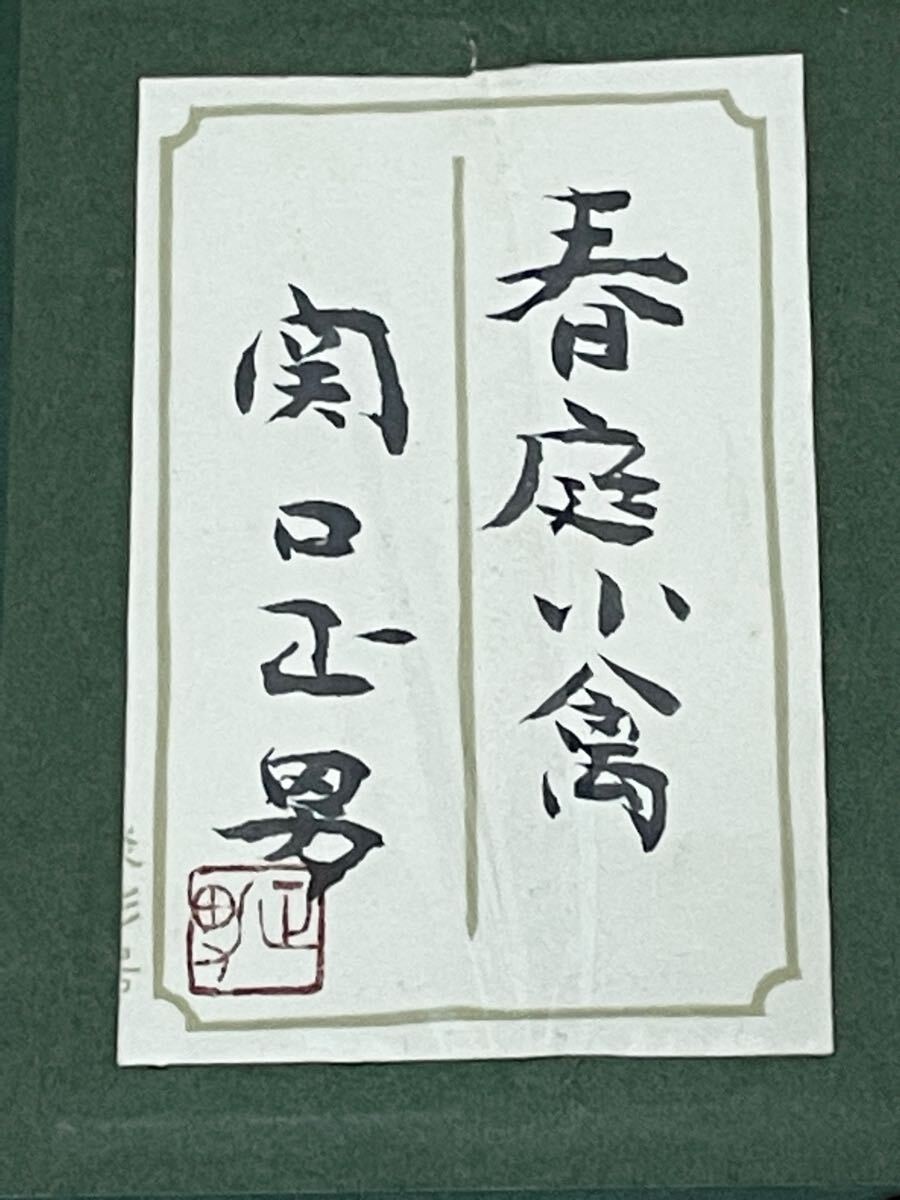 春庭小禽
関口正男
正男